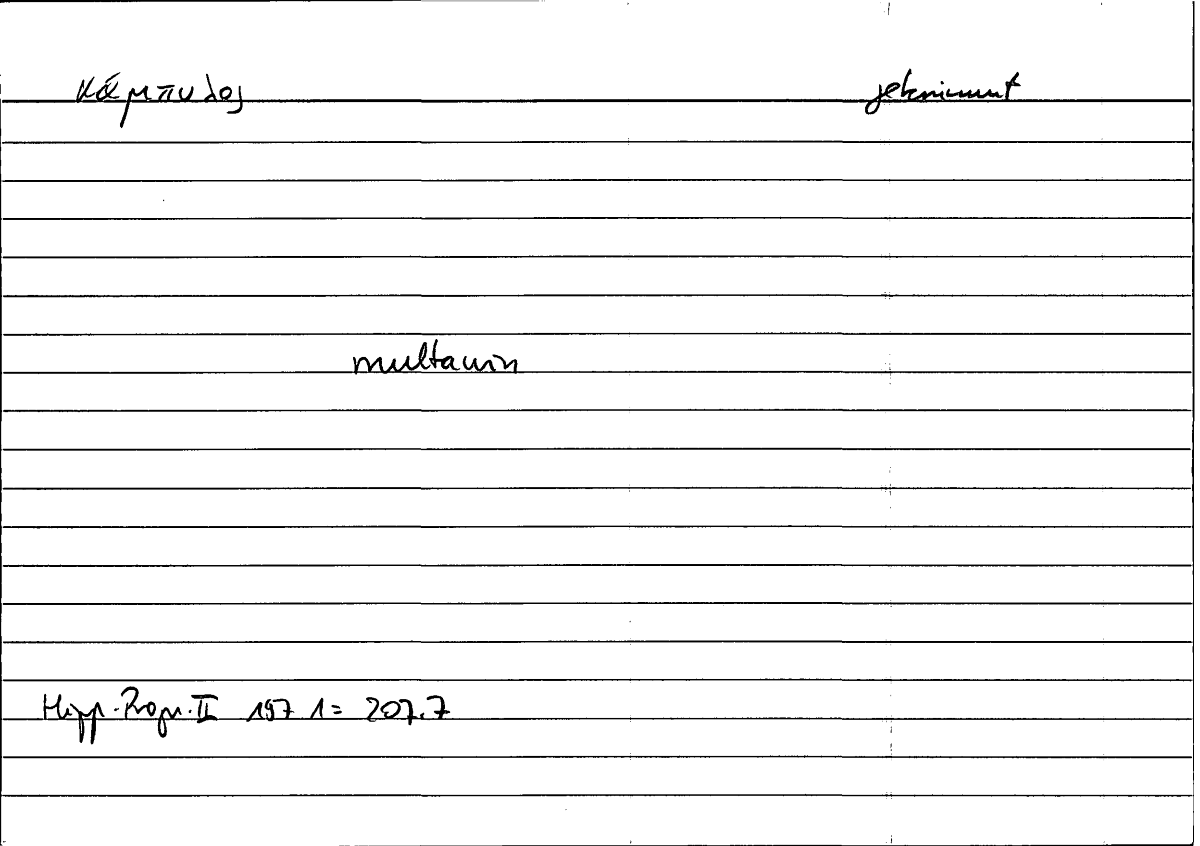 κάμπυλος gekrümmt
multawin
Hipp. Progn. II 197 1 = 207.7